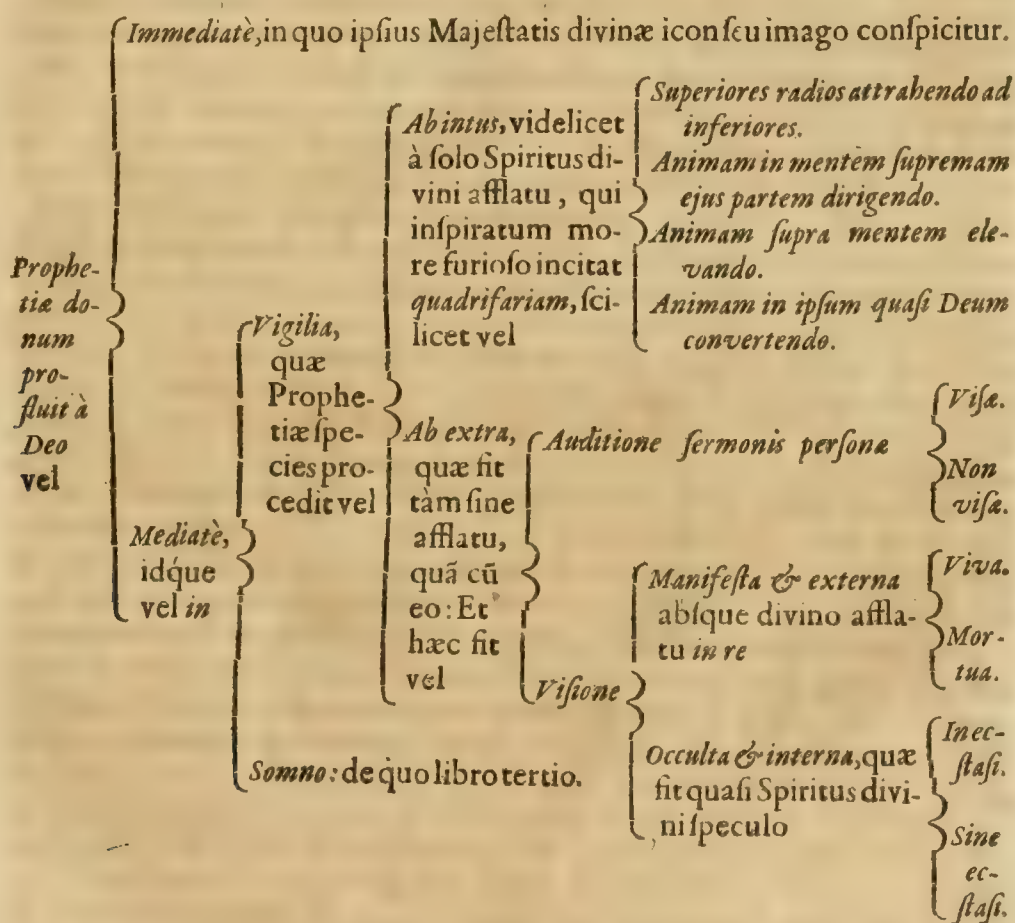 Immediatè, in quo ipſius Majeſtatis divinæ icon ſeu imago conſpicitur.
Prophe-
tiæ do-
num
pro-
fluit à
Deo
vel
Mediatè,
idq́ue
vel in
Vigilia,
quæ
Prophe-
tiæ ſpe-
cies pro-
cedit vel
Somno: de quo libro tertio.
Ab intus, videlicet
à ſolo Spiritus di-
vini afflatu, qui
inſpiratum mo-
re furioſo incitat
quadrifariam, ſci-
licet vel
Superiores radios attrahendo ad
inferiores.
Animam in mentem ſupremam
ejus partem dirigendo.
Animam ſupra mentem ele-
vando.
Animam in ipſum quaſi Deum
convertendo.
Ab extra,
quæ fit
tàm ſine
afflatu,
quã cũ
eo: Et
hæc fit
vel
Auditione ſermonis perſonæ
Viſæ.
Non
viſæ.
Viſione
Manifeſta & externa
abſque divino affla-
tu in re
Viva.
Mor-
tua.
Occulta & interna, quæ
fit quaſi Spiritus divi-
ni ſpeculo
In ec-
ſtaſi.
Sine
ec-
ſtaſi.